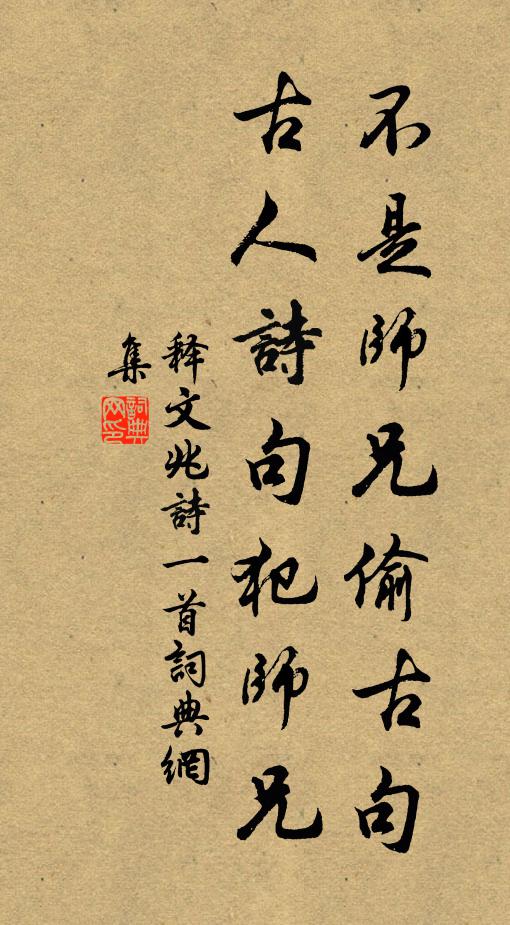 不是師兄偷古句
古人詩句犯師兄
释文兆詩一首詞典網
集
詞典网印